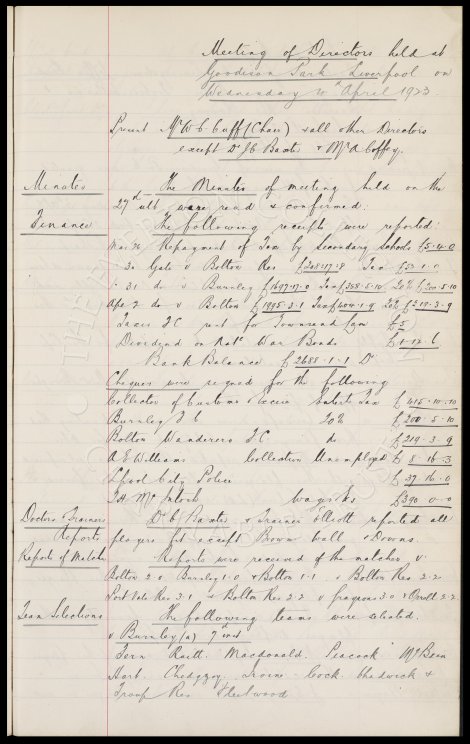 Meeting of Directors held at
Goodison Park Liverpool on
Wednesday April 1923.
Present Mr W C Cuff (Chair) & all other Directors
except Dr J C Baxter & Mr A Coffey.
Minutes
The Minutes of meeting held on the
27th ult. were read & confirmed.
Finance
The following receipts were reported:
Mar. 26 Repayment of Tax by Secondary Schools £5.14.0
" 30 Gate v Bolton Res £208.17.8 Tax £53.1.0
" 31 do v Burnley £1697.17.0 Tax £388.5.10 20% £200.5.10
Apl 2 do v Bolton £1995.3.1 Tax £409.1.9 20% £219.3.9
F.C. for Townsend Lane £5
Dividend on Natl War Bonds £1.12.6
Bank Balance £2688.1.1 Dr
Cheques were signed for the following
Collector of Customs & Excise Entert Tax £415.10.10
Burnley F.C. 20% £200.5.10
Bolton Wanderers F.C. do £219.3.9
A.E. Williams Collection Unemployed £8.16.3
Lpool City Police £37.16.0
T.H. McIntosh wages &c £390.0.0
Doctors & Trainers
Reports
Dr C Baxter & Trainer Elliott reported all
players fit except Brown Wall & Downs.
Reports of Matches
Reports were received of the matches v.
Bolton 2.0 Burnley 1.0 & Bolton 1.1 v Bolton Res 2.2
Port Vale Res 3.1 & Bolton Res 2.2 v 3.0 & Orrell 2.2
Team Selections
The following teams were selected.
v Burnley (a) 7th inst
Fern Raitt Macdonald Peacock McBain
Hart. Chedgzoy. Irvine Cock. Chadwick &
Troup Res Fleetwood